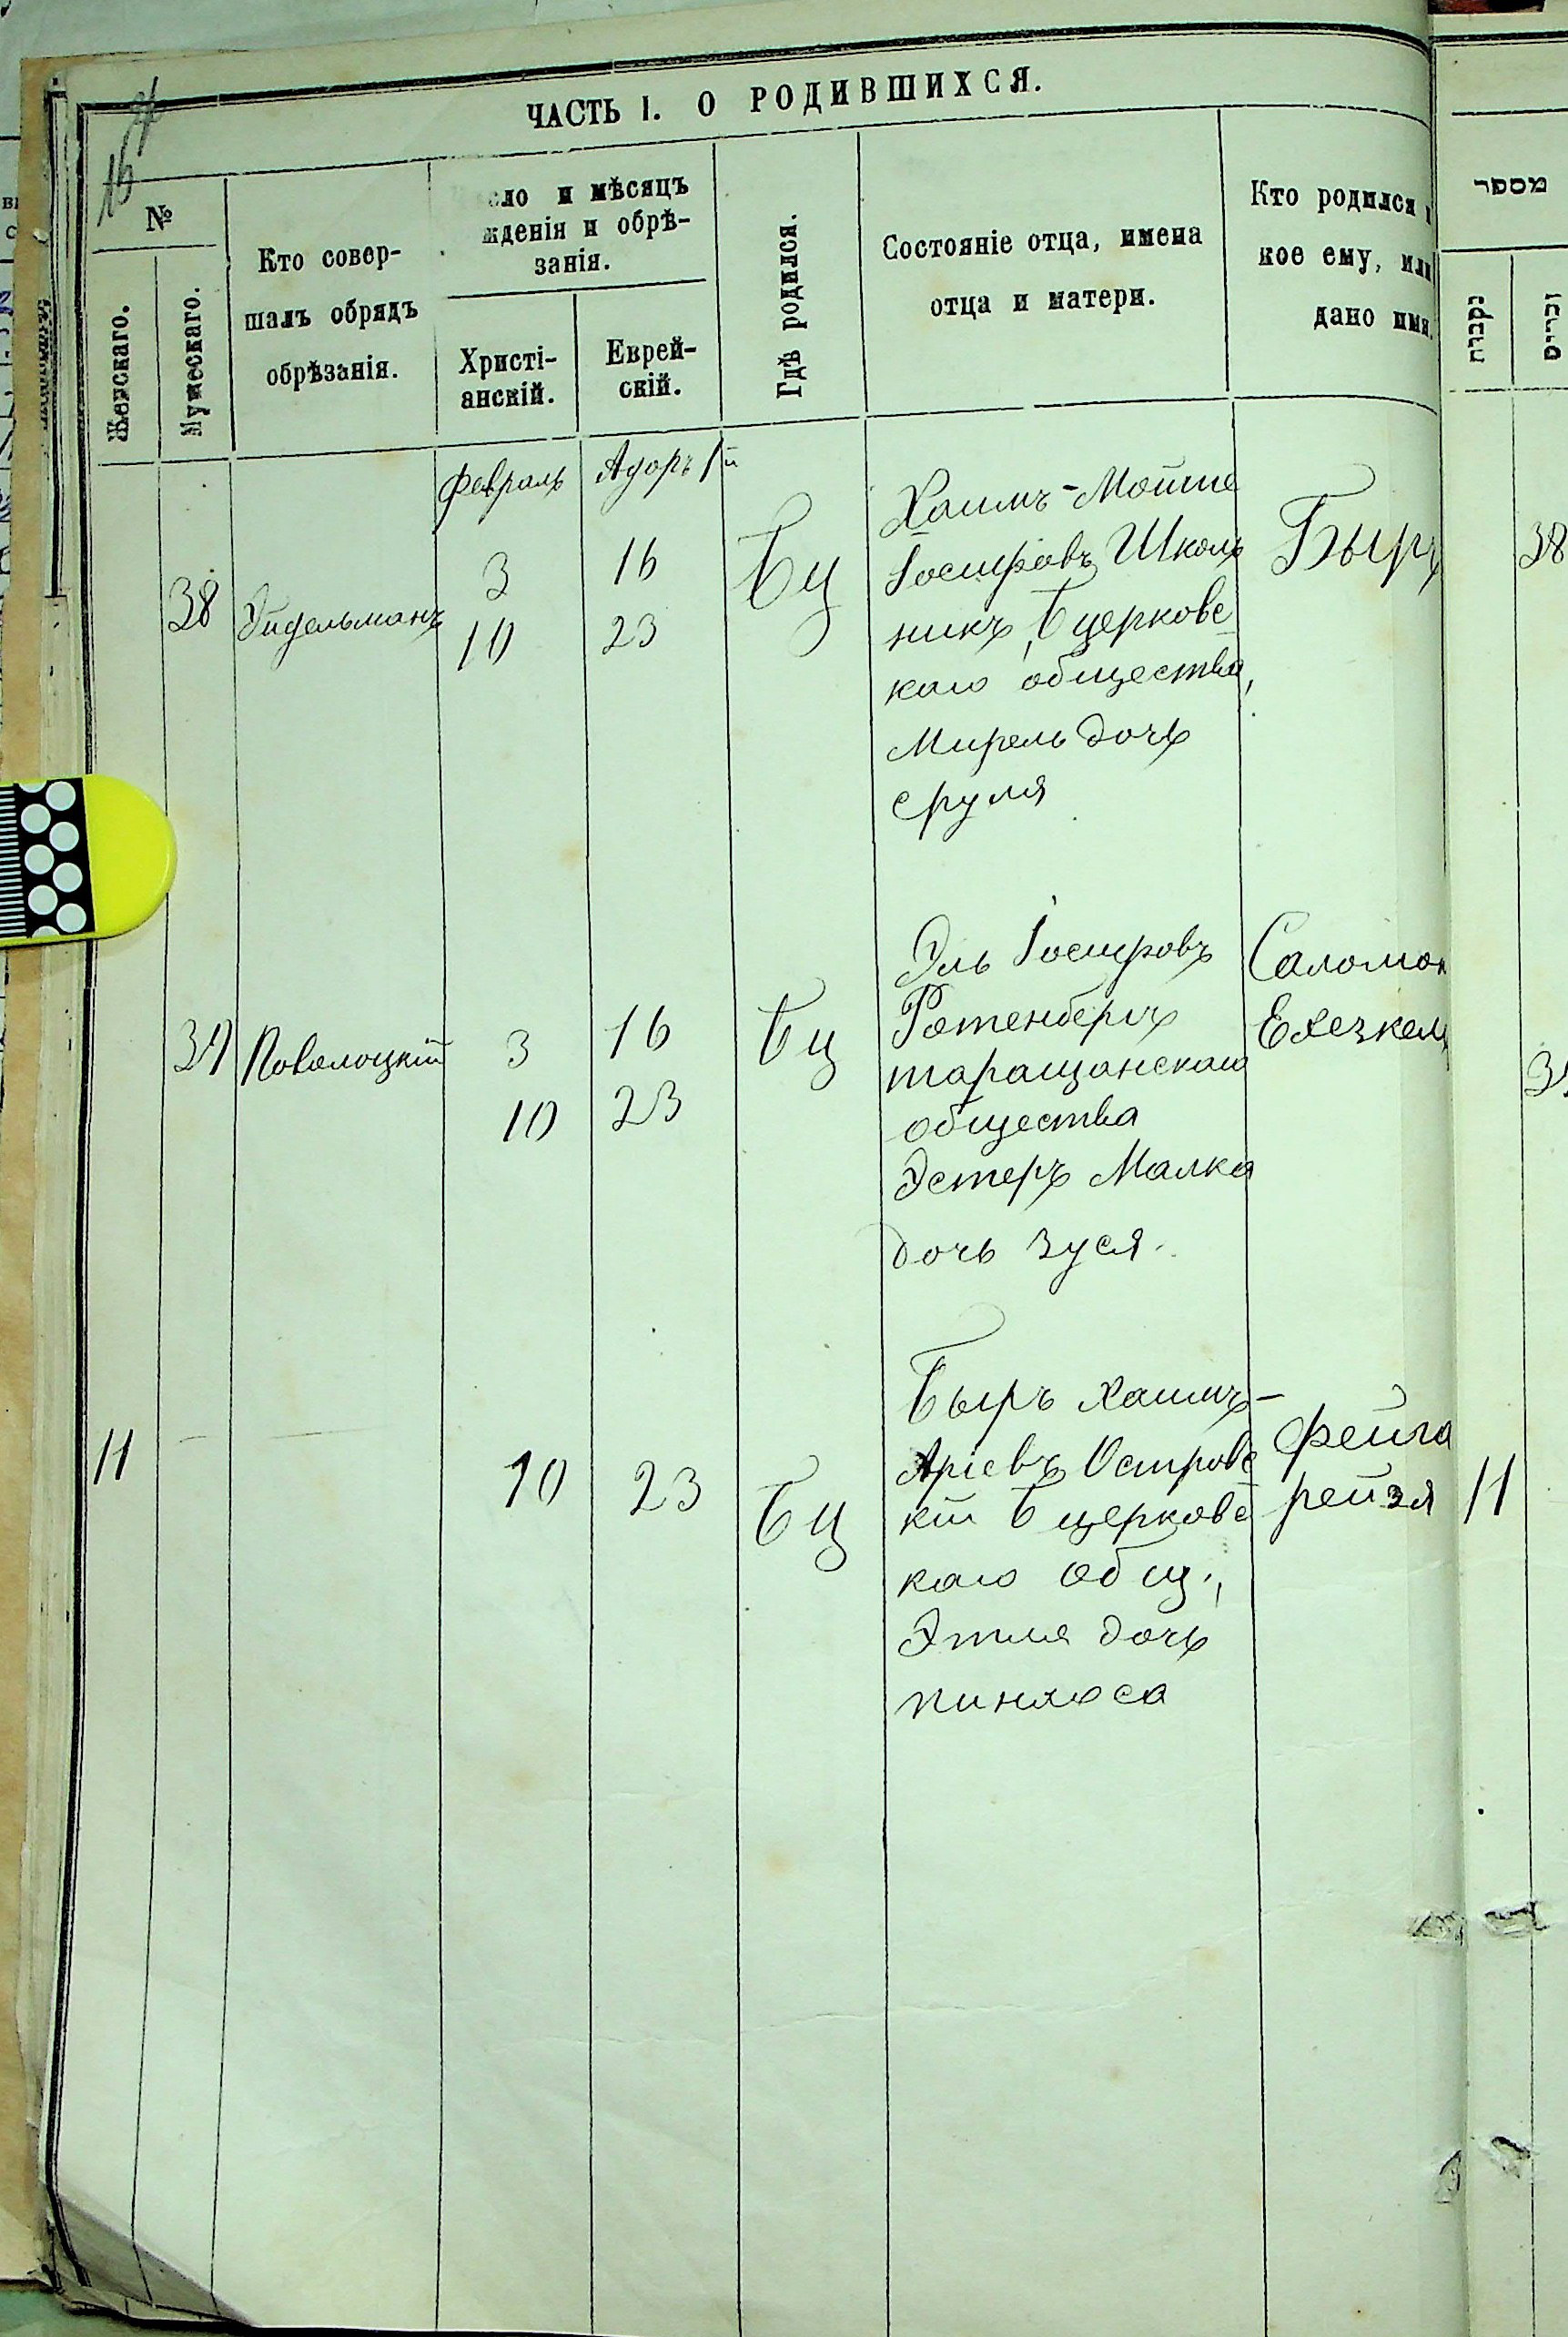 16
ЧАСТЬ I. О РОДИВШИХСЯ.
№
Женскаго.
Мужескаго.
Кто совер-
шалъ обрядъ
обрѣзанія.
ло и мѣсяцъ
жденія и обрѣ-
занія.
Христі-
анскій.
Еврей-
скій.
Гдѣ родился.
Состояніе отца, имена
отца и матери.
Кто родился
кое ему, или
дано имя.
מספר
נקבות
זכרים
Февраль
Адоръ 1й
38
Эйдельманъ
3
10
16
23
Бц
Хаимъ-Мойше
Іосифовъ Школь
никъ, Бцерковс
каго общества,
Мирель дочь
сруля
Быръ
38
39
Поволоцкій
3
10
16
23
Бц
Эль Іосифовъ
Ротенбергъ
таращанскаго
общества
Эстеръ Малка
дочь Зуся.
Саломон
Ехезкель
11
10
23
Бц
Быръ Хаимъ-
Аріевъ Островс
кій Бцерковс
каго общ.,
Этля дочь
пинхоса
Фейга
рейзя
11